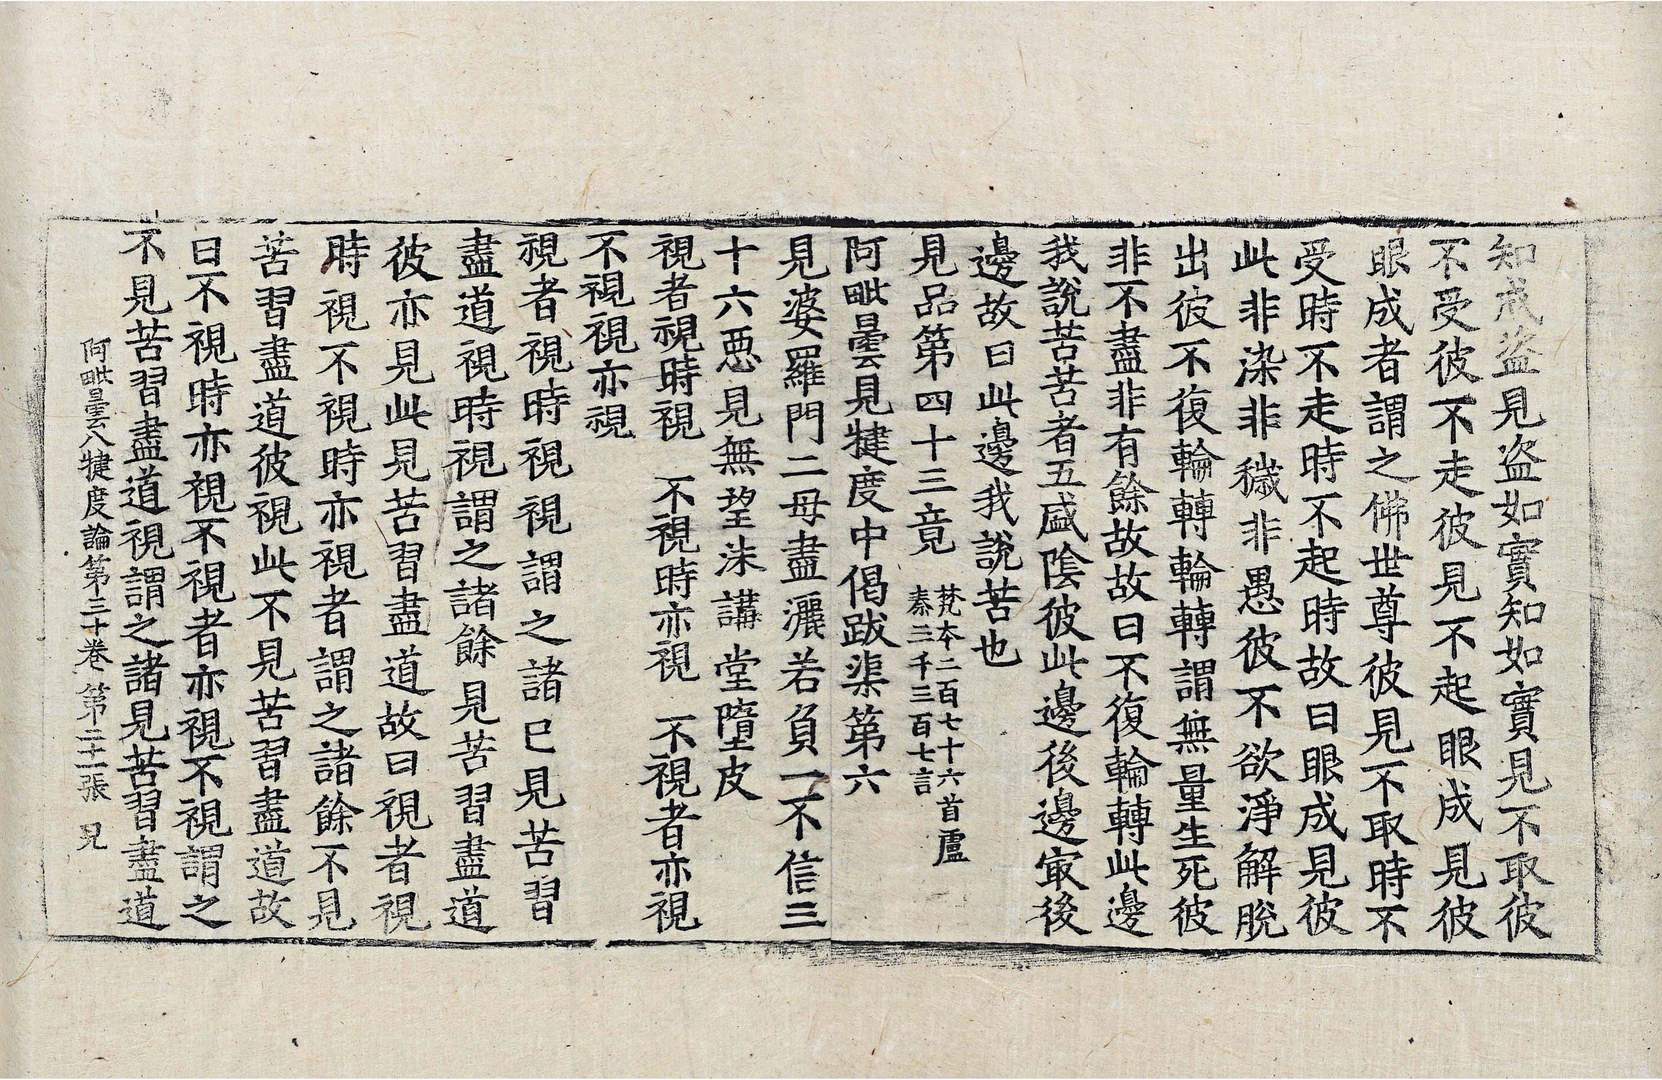 知戒盗見盗如實知如實見不取彼
不受彼不走彼見不起眼成見彼
眼成者謂之佛世尊彼見不取時不
受時不走時不起時故曰眼成見彼
此非染非穢非愚彼不欲淨解脫
出彼不復輪轉輪轉謂無量生死彼
非不盡非有餘故故曰不復輪轉此邊
我說苦苦者五盛陰彼此邊後邊㝡後
邊故曰此邊我說苦也
見品第四十三竟 梵本二百七十六首盧
秦三千三百七言
阿毗曇見犍度中偈跋渠第六
見婆羅門二母盡灑若負一不信三
十六惡見無望洣講堂墮皮
視者視時視 不視時亦視 不視者亦視
不視視亦視
視者視時視視謂之諸已見苦習
盡道視時視謂之諸餘見苦習盡道
彼亦見此見苦習盡道故曰視者視
時視不視時亦視者謂之諸餘不見
苦習盡道彼視此不見苦習盡道故
曰不視時亦視不視者亦視不視謂之
不見苦習盡道視謂之諸見苦習盡道
阿毗曇八犍度論第三十卷 第二十一張 兄